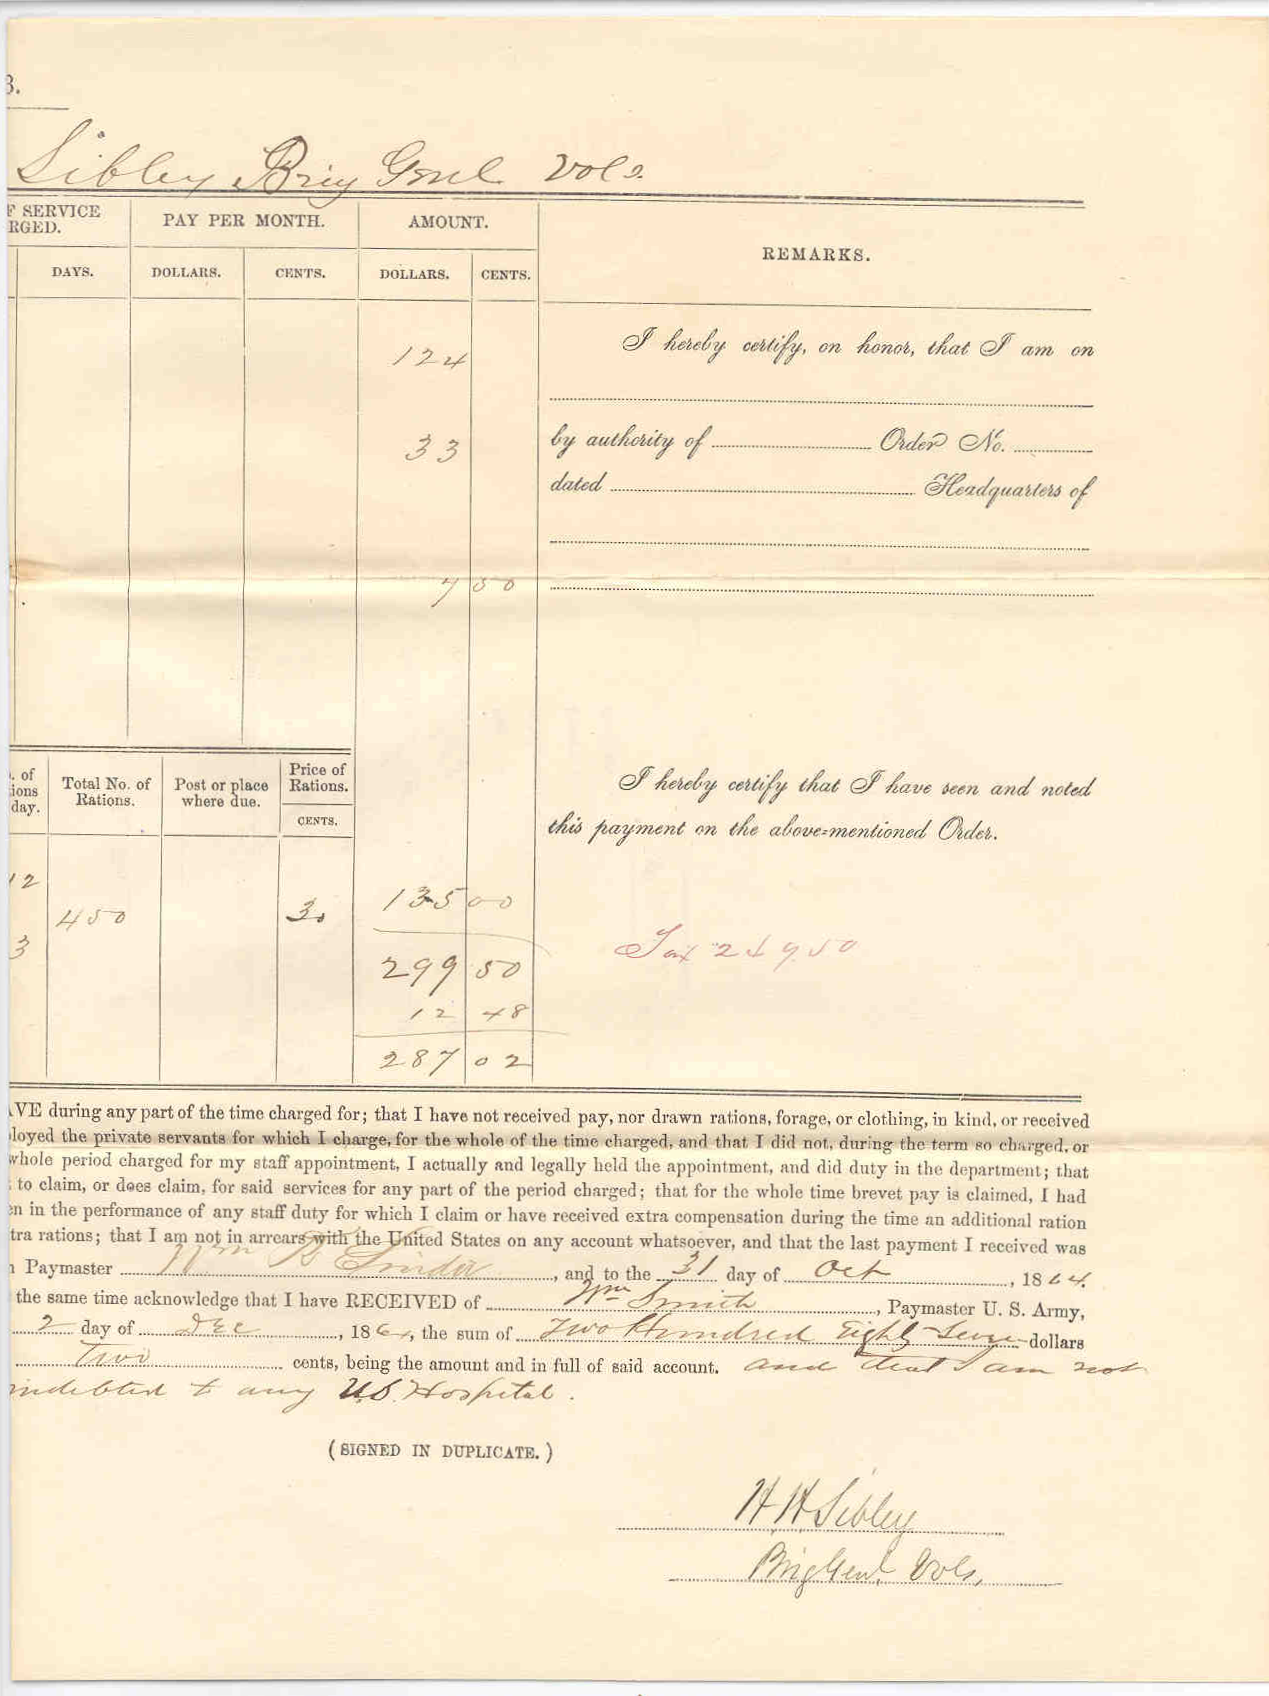 3.
Sibley Brig Genl Vols.
F SERVICE
RGED.
PAY PER MONTH.
AMOUNT.
REMARKS.
DAYS.
DOLLARS.
CENTS.
DOLLARS.
CENTS.
I hereby certify, on honor, that I am on
124
33
by authority of Order No.
dated Headquarters of
7 50
. of
ions
day.
Total No. of
Rations.
Post or place
where due.
Price of
Rations.
CENTS.
I hereby certify that I have seen and noted
this payment on the above-mentioned Order.
12
450
30
135 00
3
Tax 249.50
299 50
12 48
287 02
AVE during any part of the time charged for; that I have not received pay, nor drawn rations, forage, or clothing, in kind, or received
loyed the private servants for which I charge, for the whole of the time charged, and that I did not, during the term so charged, or
whole period charged for my staff appointment, I actually and legally held the appointment, and did duty in the department; that
to claim, or does claim, for said services for any part of the period charged; that for the whole time brevet pay is claimed, I had
en in the performance of any staff duty for which I claim or have received extra compensation during the time an additional ration
tra rations; that I am not in arrears with the United States on any account whatsoever, and that the last payment I received was
Paymaster Wm , and to the 31 day of Oct , 1864.
the same time acknowledge that I have RECEIVED of Wm Smith , Paymaster U. S. Army,
2 day of Dec , 1864, the sum of Two Hundred Eighty Seven dollars
Two cents, being the amount and in full of said account. and that I am not
indebted to any U.S. Hospital.
(SIGNED IN DUPLICATE.)
H H Sibley
Brig Genl Vols.